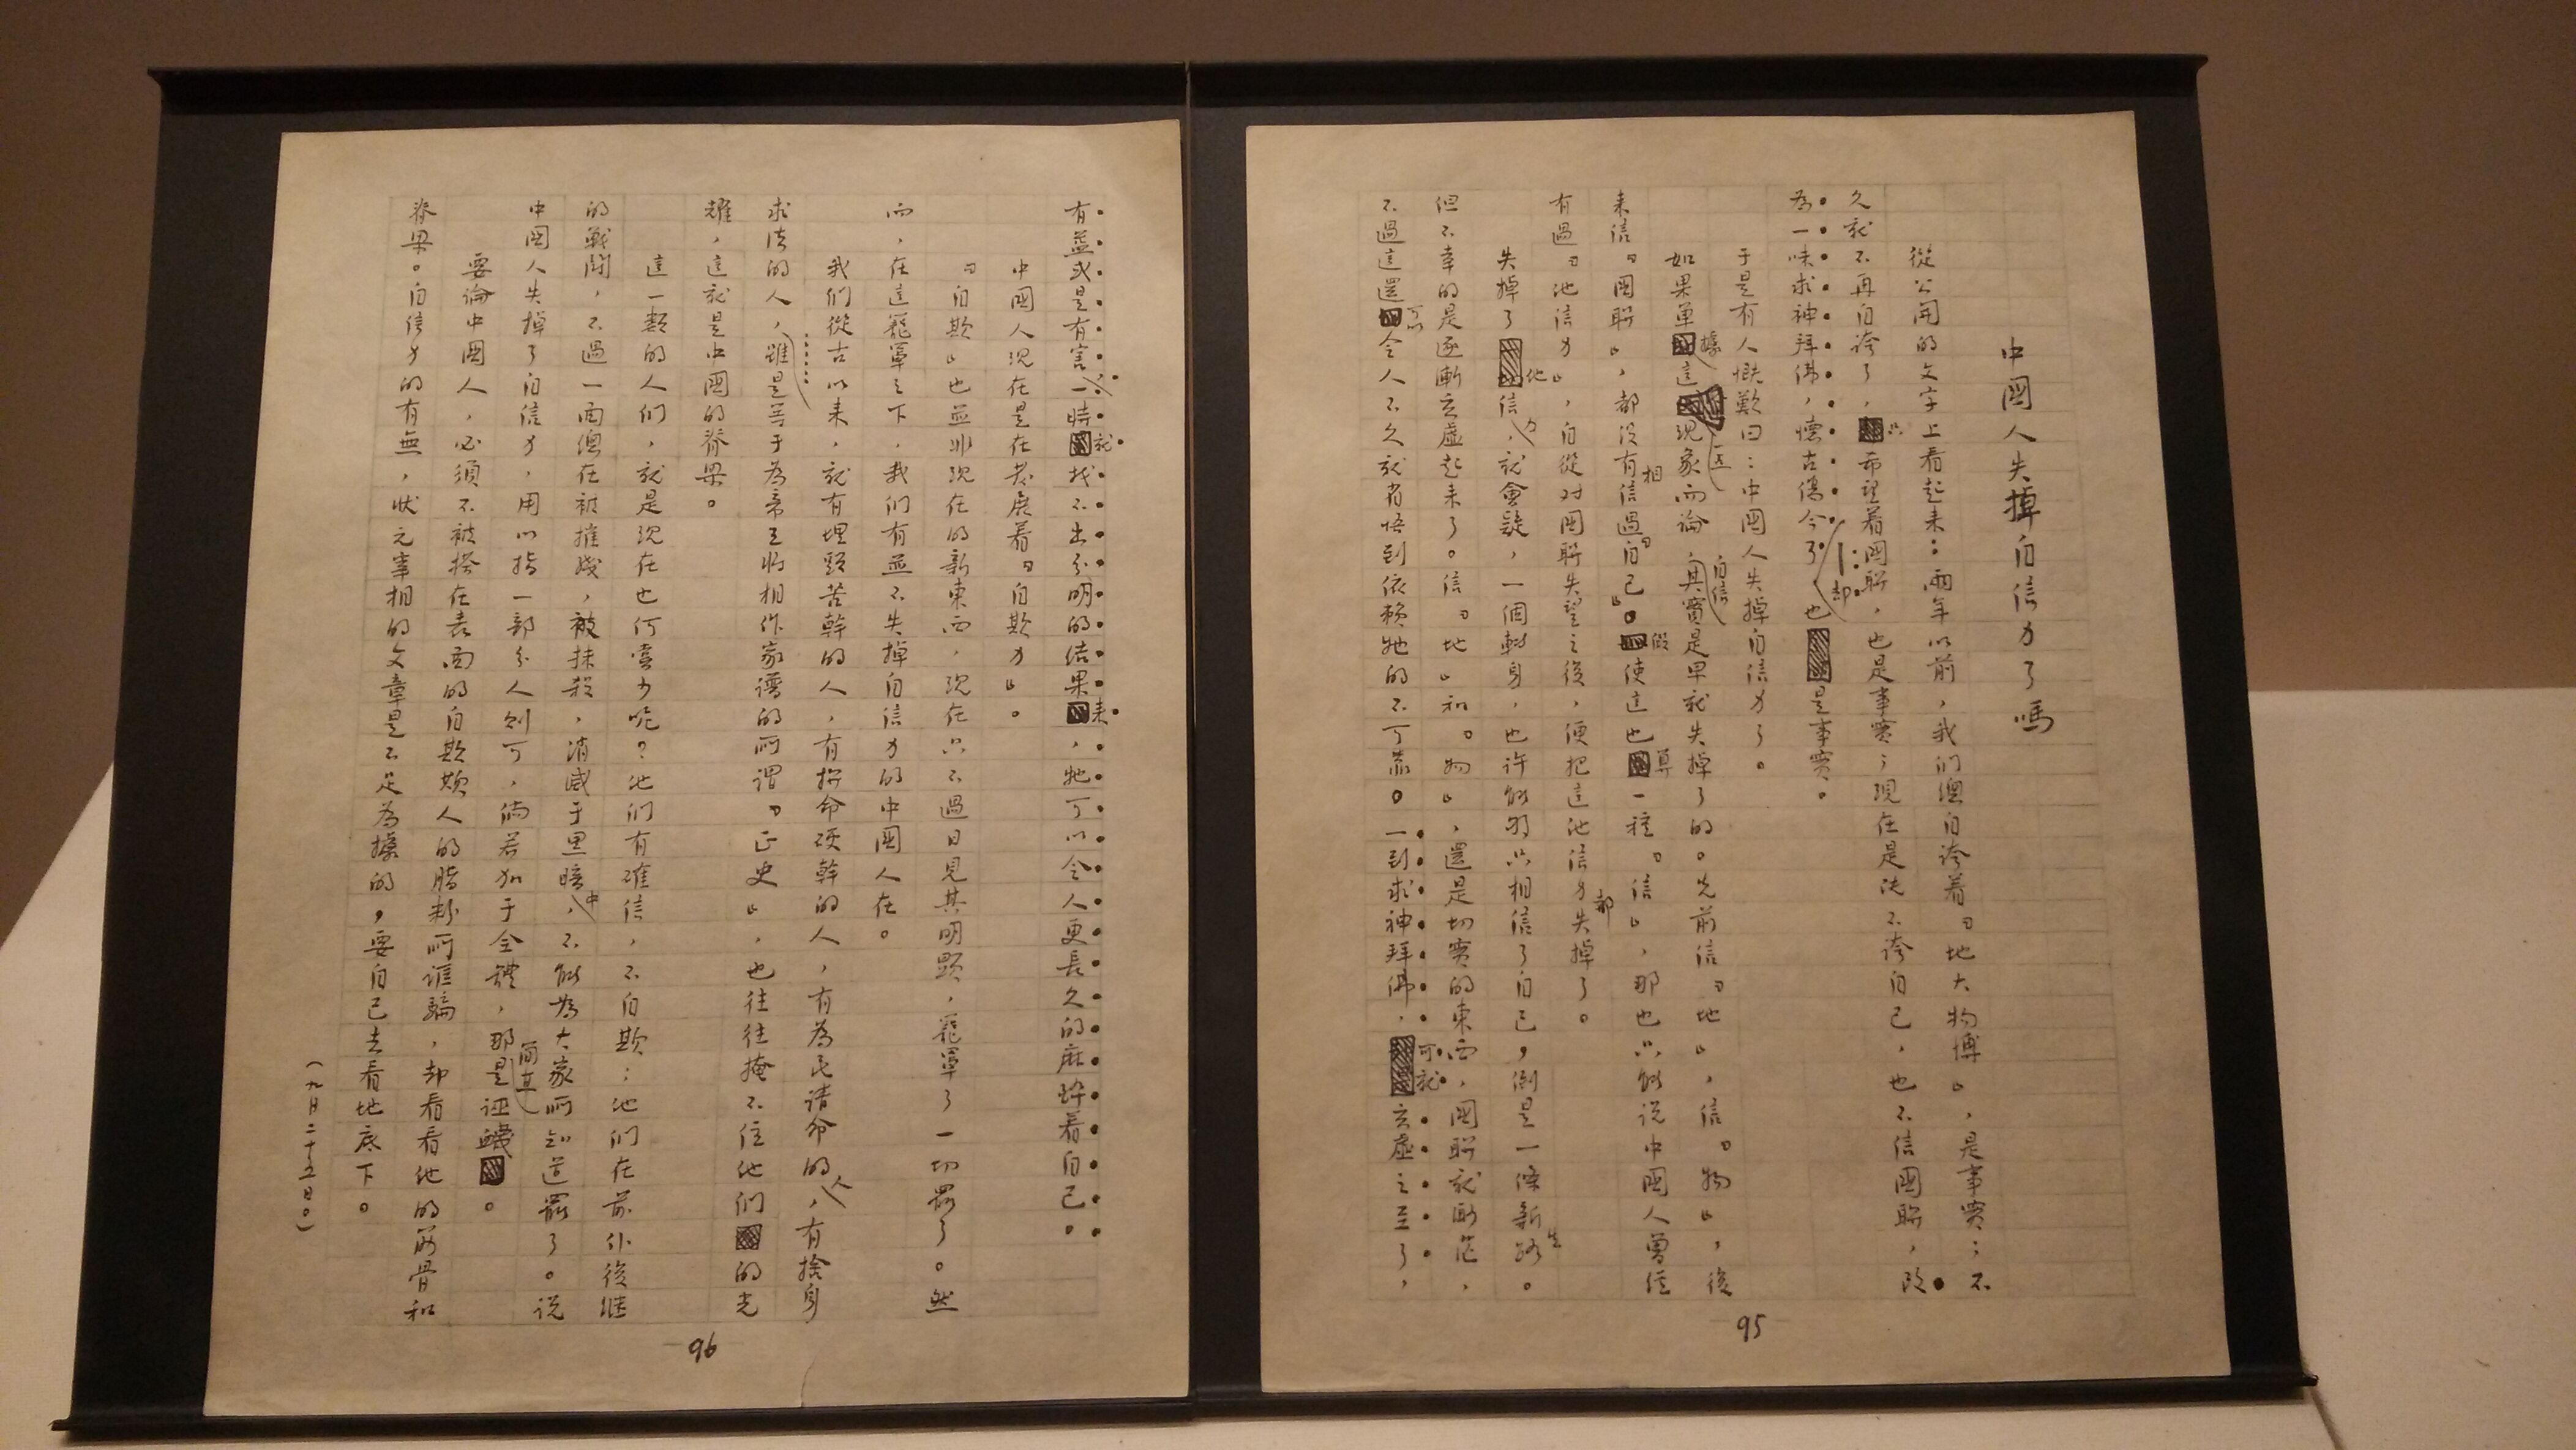 中國人失掉自信力了嗎
從公開的文字上看起来：兩年以前，我们總自誇着「地大物博」，是事實；不
久就不再自誇了，只希望着國聯，也是事實；現在是既不誇自己，也不信國聯，改
為一味求神拜佛，懷古傷今了——却也是事實。
于是有人慨歎曰：中國人失掉自信力了。
如果單據這一点現象而論，自信其實是早就失掉了的。先前信「地」，信「物」，後
来信「國聯」，都没有相信過「自己」。假使這也算一種「信」，那也只能说中國人曾經
有過「他信力」，自從对國聯失望之後，便把這他信力都失掉了。
失掉了他信力，就會疑，一個轉身，也许能夠只相信了自己，倒是一條新生路。
但不幸的是逐漸玄虛起来了。信「地」和「物」，還是切實的東西，國聯就渺茫，
不過這還可以令人不久就省悟到依赖牠的不可靠。一到求神拜佛，可就玄虛之至了，
95
有益或是有害，一時就找不出分明的结果来，牠可以令人更長久的麻醉着自己。
中國人现在是在發展着「自欺力」。
「自欺」也並非现在的新東西，现在只不過日見其明顯，籠罩了一切罷了。然
而，在這籠罩之下，我们有並不失掉自信力的中國人在。
我们從古以来，就有埋頭苦幹的人，有拚命硬幹的人，有為民請命的人，有捨身
求法的人，……雖是等于為帝王将相作家譜的所謂「正史」，也往往掩不住他们的光
耀，這就是中國的脊梁。
這一類的人们，就是现在也何嘗少呢？他们有確信，不自欺；他们在前仆後继
的戰鬪，不過一面總在被摧殘，被抹殺，消滅于黑暗中，不能為大家所知道罷了。说
中國人失掉了自信力，用以指一部分人則可，倘若加于全體，那簡直是誣衊。
要論中國人，必須不被搽在表面的自欺欺人的脂粉所誆騙，却看看他的筋骨和
脊梁。自信力的有無，状元宰相的文章是不足為據的，要自己去看地底下。
（九月二十五日。）
96